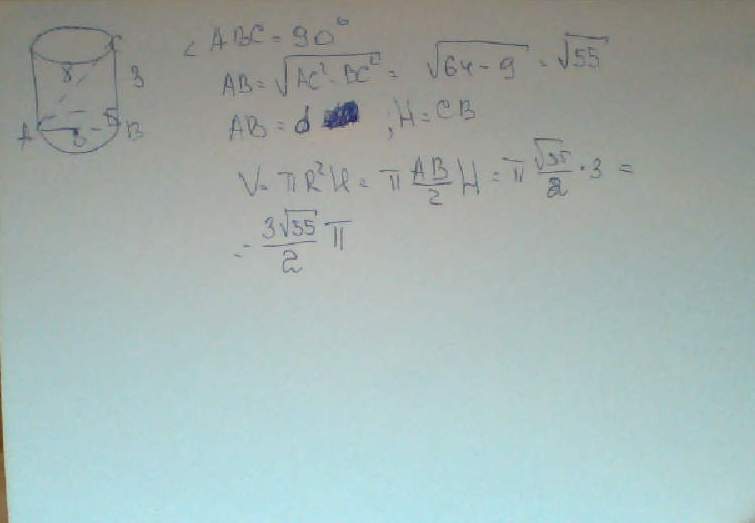 C
8
3
A
O
B
∠ ABC = 90°
AB = √(AC² - BC²) = √(64 - 9) = √55
AB = d ; H = CB
V = πR²H = π AB/2 H = π √55/2 · 3 =
= 3√55/2 π